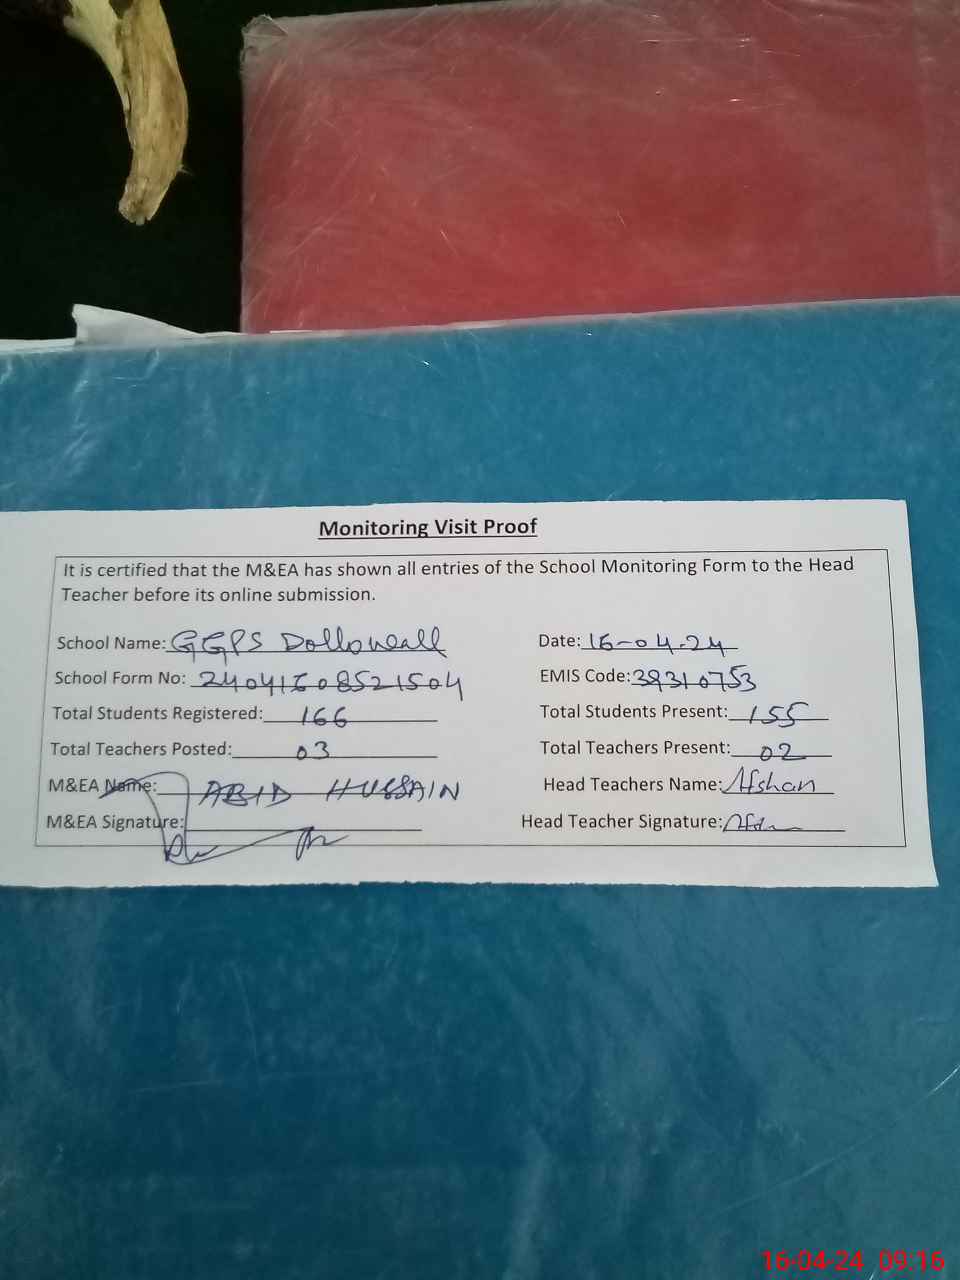 Monitoring Visit Proof
It is certified that the M&EA has shown all entries of the School Monitoring Form to the Head
Teacher before its online submission.
School Name: GGPS Dollowali Date: 16-04-24
School Form No: 24041608521504 EMIS Code: 39310753
Total Students Registered: 166 Total Students Present: 155
Total Teachers Posted: 03 Total Teachers Present: 02
M&EA Name: ABID HUSSAIN Head Teachers Name: Afshan
M&EA Signature: Head Teacher Signature:
16-04-24 09:16